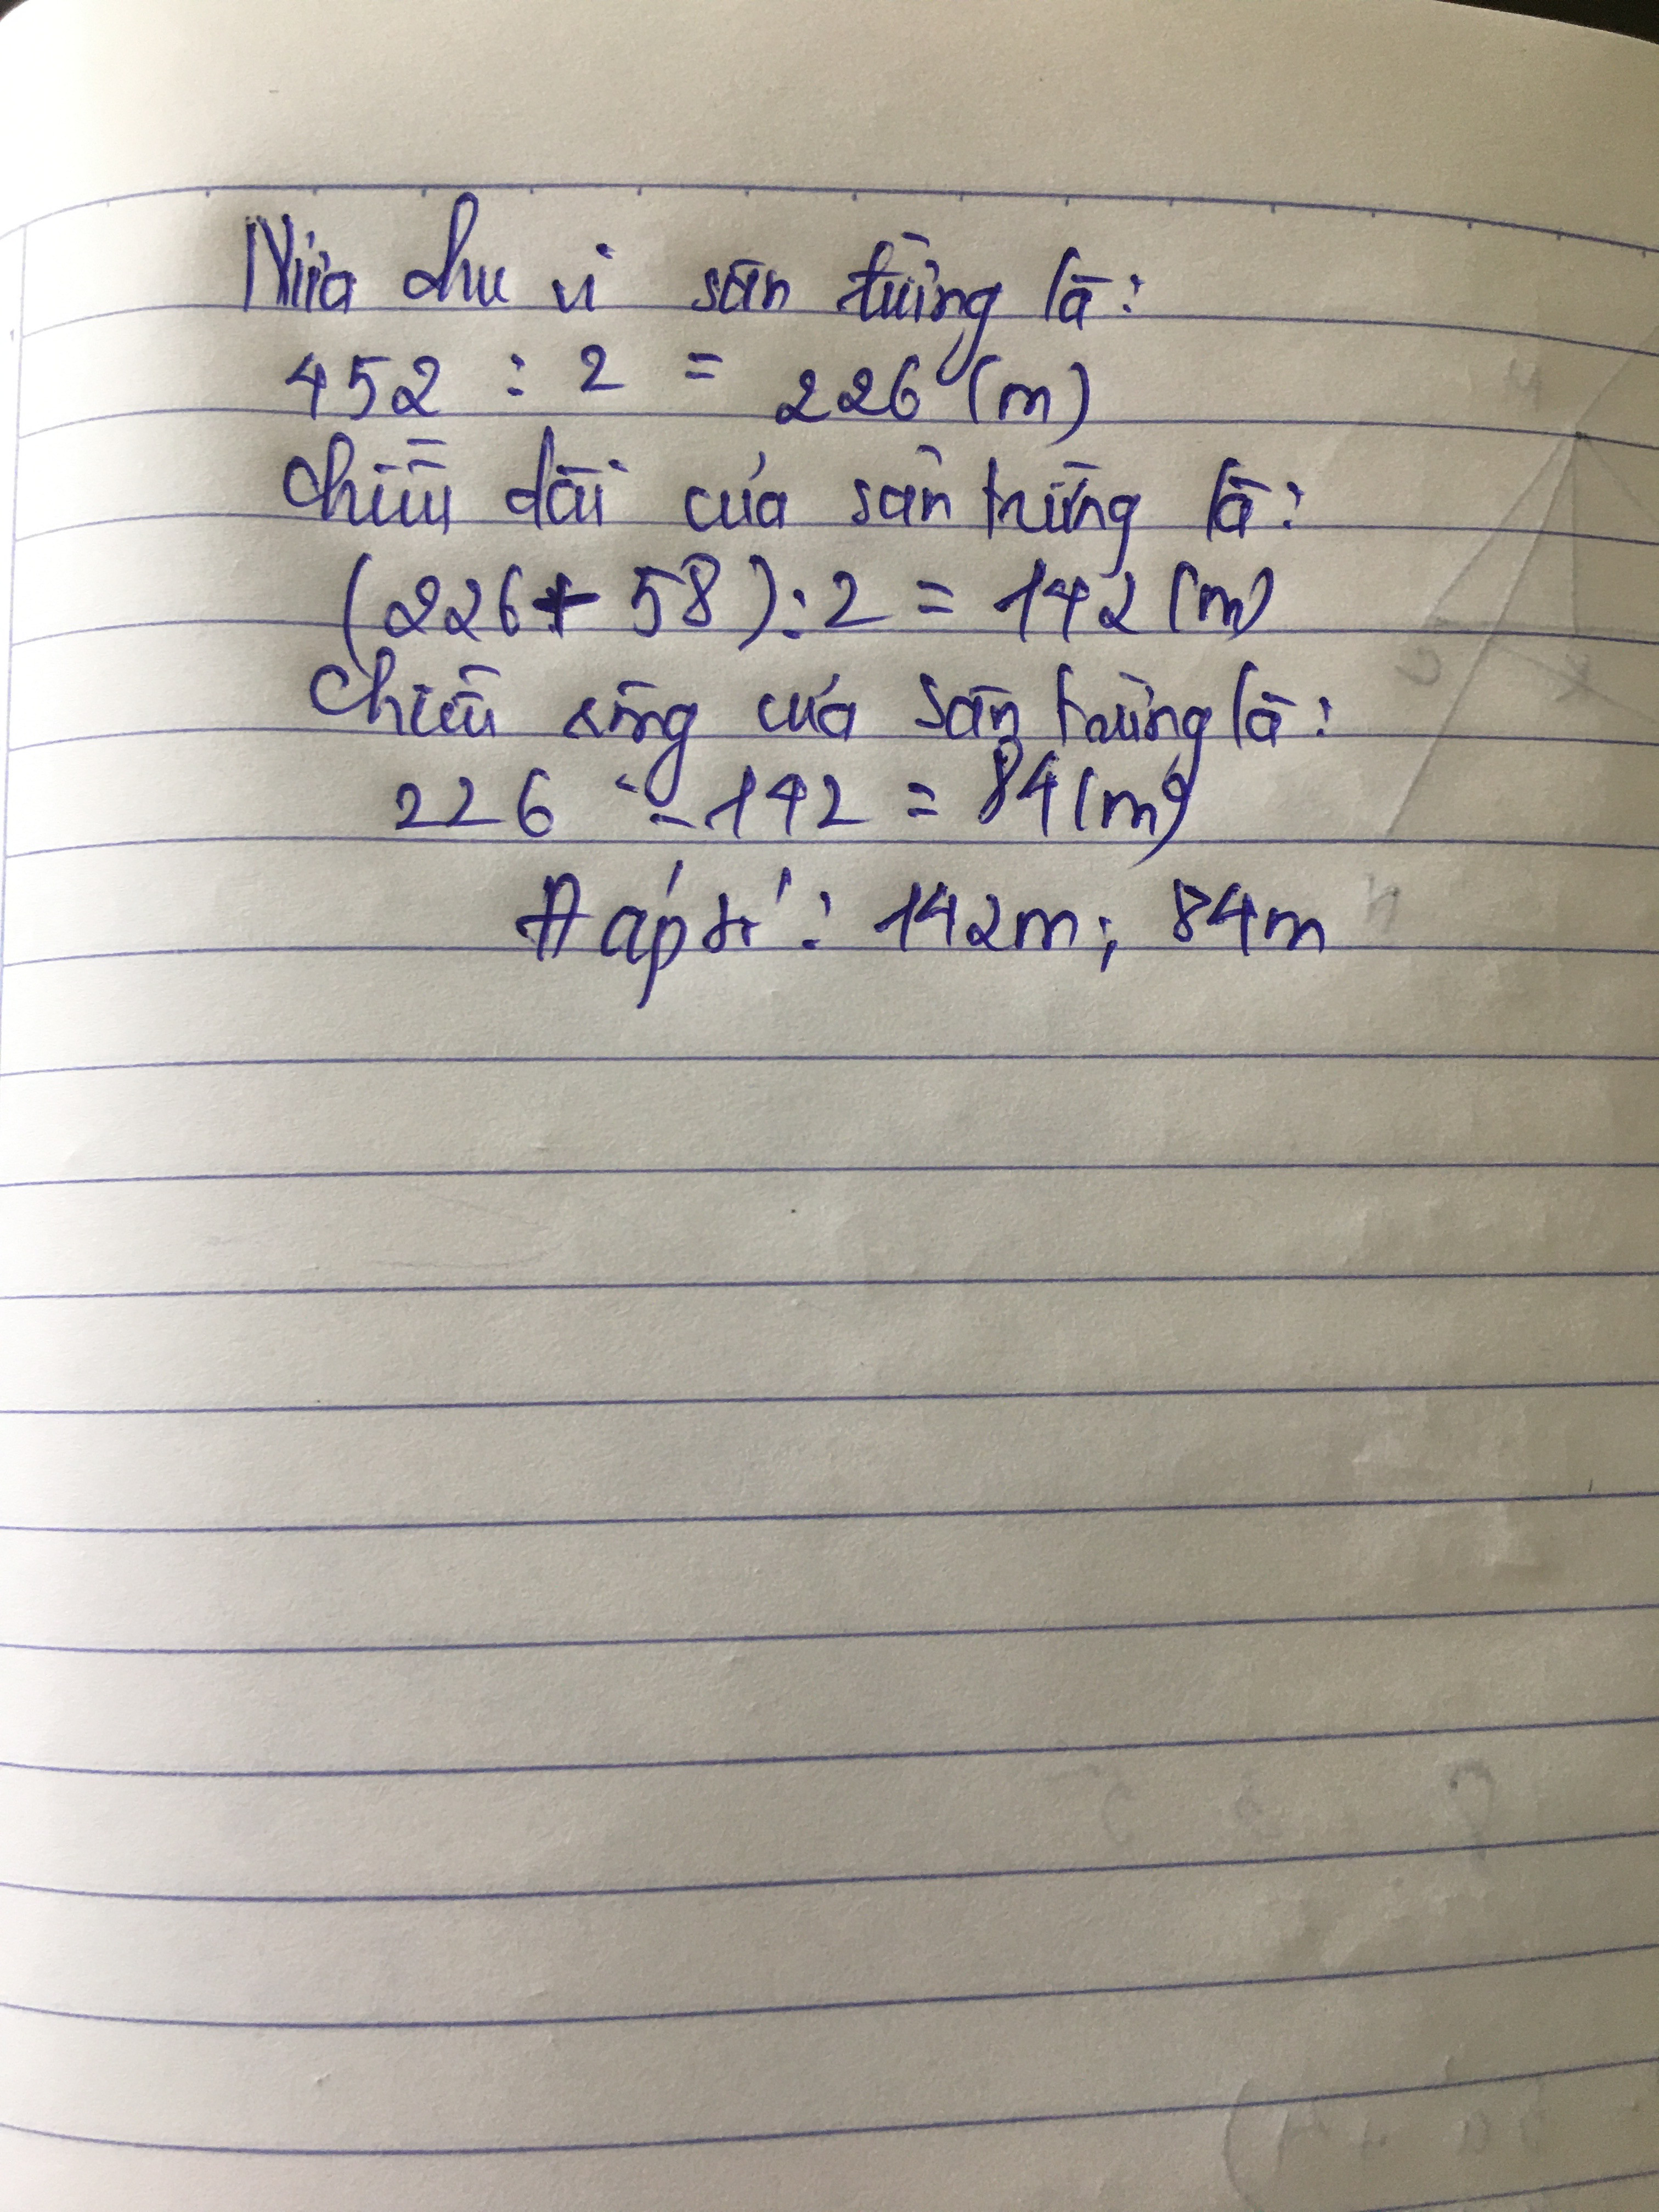 Nửa chu vi sân trường là:
452 : 2 = 226 (m)
Chiều dài của sân trường là:
(226 + 58) : 2 = 142 (m)
Chiều rộng của sân trường là:
226 - 142 = 84 (m)
Đáp số: 142m; 84m